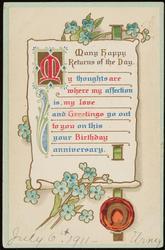 Many Happy
Returns of the Day.
My thoughts are
where my affection
is, my love
and Greetings go out
to you on this
your Birthday
anniversary.
July 6th 1911